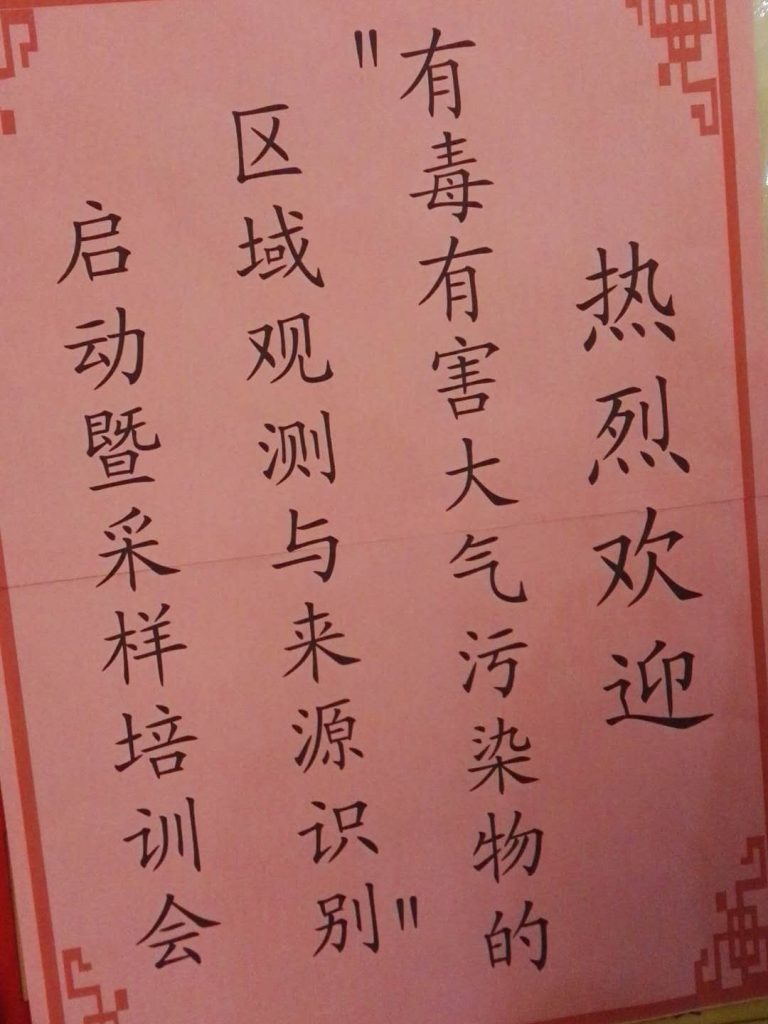 热烈欢迎
"有毒有害大气污染物的
区域观测与来源识别"
启动暨采样培训会